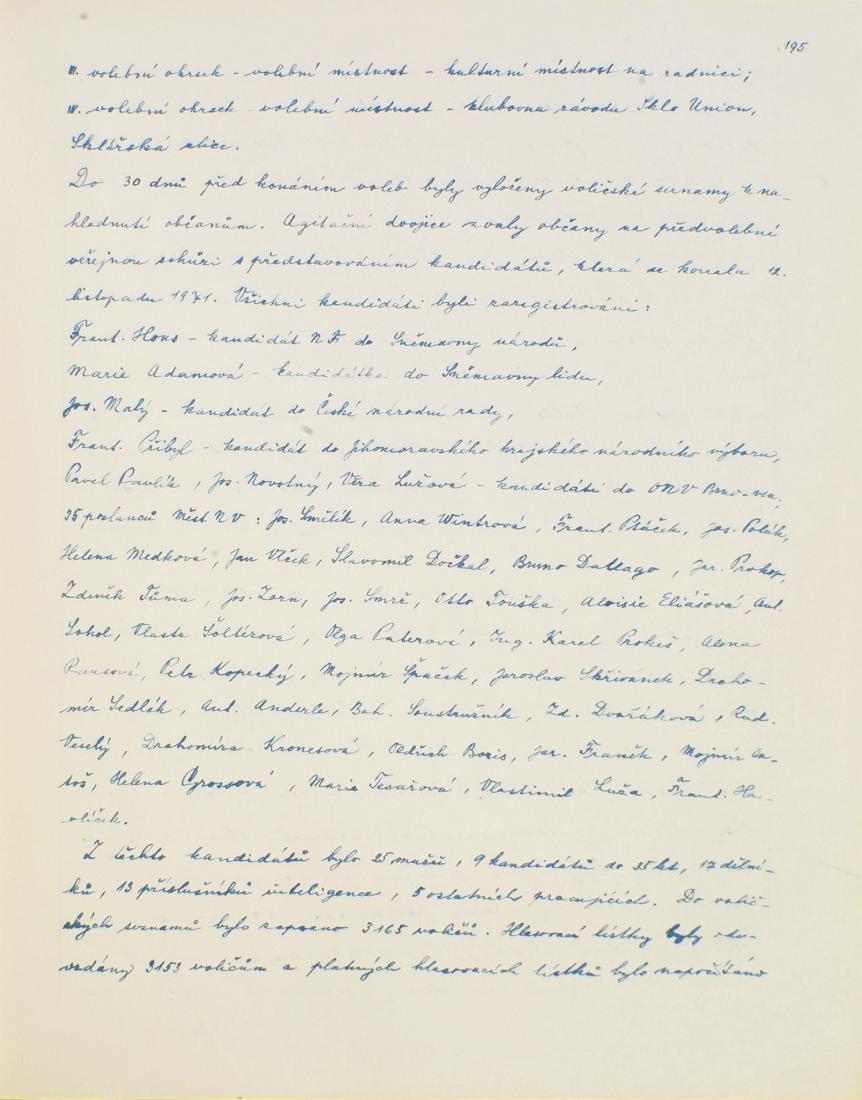 195
III. volební okrsek - volební místnost - kulturní místnost na radnici;
IV. volební okrsek volební místnost - klubovna závodu Sklo Union,
Sklářská ulice.
Do 30 dnů před konáním voleb byly vyloženy voličské seznamy k na-
hlédnutí občanům. Agitační dvojice zvaly občany na předvolební
veřejnou schůzi s představováním kandidátů, která se konala 12.
listopadu 1971. Všichni kandidáti byli zaregistrováni:
Frant. Hons - kandidát N F do Sněmovny národů,
Marie Adamová - kandidátka do Sněmovny lidu,
Jos. Malý - kandidát do České národní rady,
Frant. Přibyl - kandidát do Jihomoravského krajského národního výboru,
Pavel Pavlík, Jos. Novotný, Věra Lužová - kandidáti do ONV Brno-ven.,
35 poslanců Měst N V : Jos. Smělík, Anna Wintrová, Frant. Ptáček, Jos. Polák,
Helena Medková, Jan Vlček, Slavomil Dočkal, Bruno Dallago, Jar. Prokop,
Zdeněk Tůma, Jos. Zorn, Jos. Smrž, Otto Fouška, Aloisie Eliášová, Ant.
Sokol, Vlasta Šoltézová, Olga Paterová, Ing. Karel Prokeš, Alena
Petr Kopecký, Mojmír Špaček, Jaroslav Skřivánek, Draho-
mír Sedlák, Ant. Anderle, Boh. Soustružník, Zd. Dvořáková, Rud.
Veselý, Drahomíra Kronesová, Oldřich Boris, Jar. Franěk, Mojmír An-
toš, Helena Grossová, Marie Tesařová, Vlastimil Luža, Frant. Ha-
vlíček.
Z těchto kandidátů bylo 25 mužů, 9 kandidátů do 35 let, 17 dělní-
ků, 13 příslušníků inteligence, 5 ostatních pracujících. Do volič-
ských seznamů bylo zapsáno 3165 voličů. Hlasovací lístky byly ode-
vzdány 3153 voličům a platných hlasovacích lístků bylo napočítáno